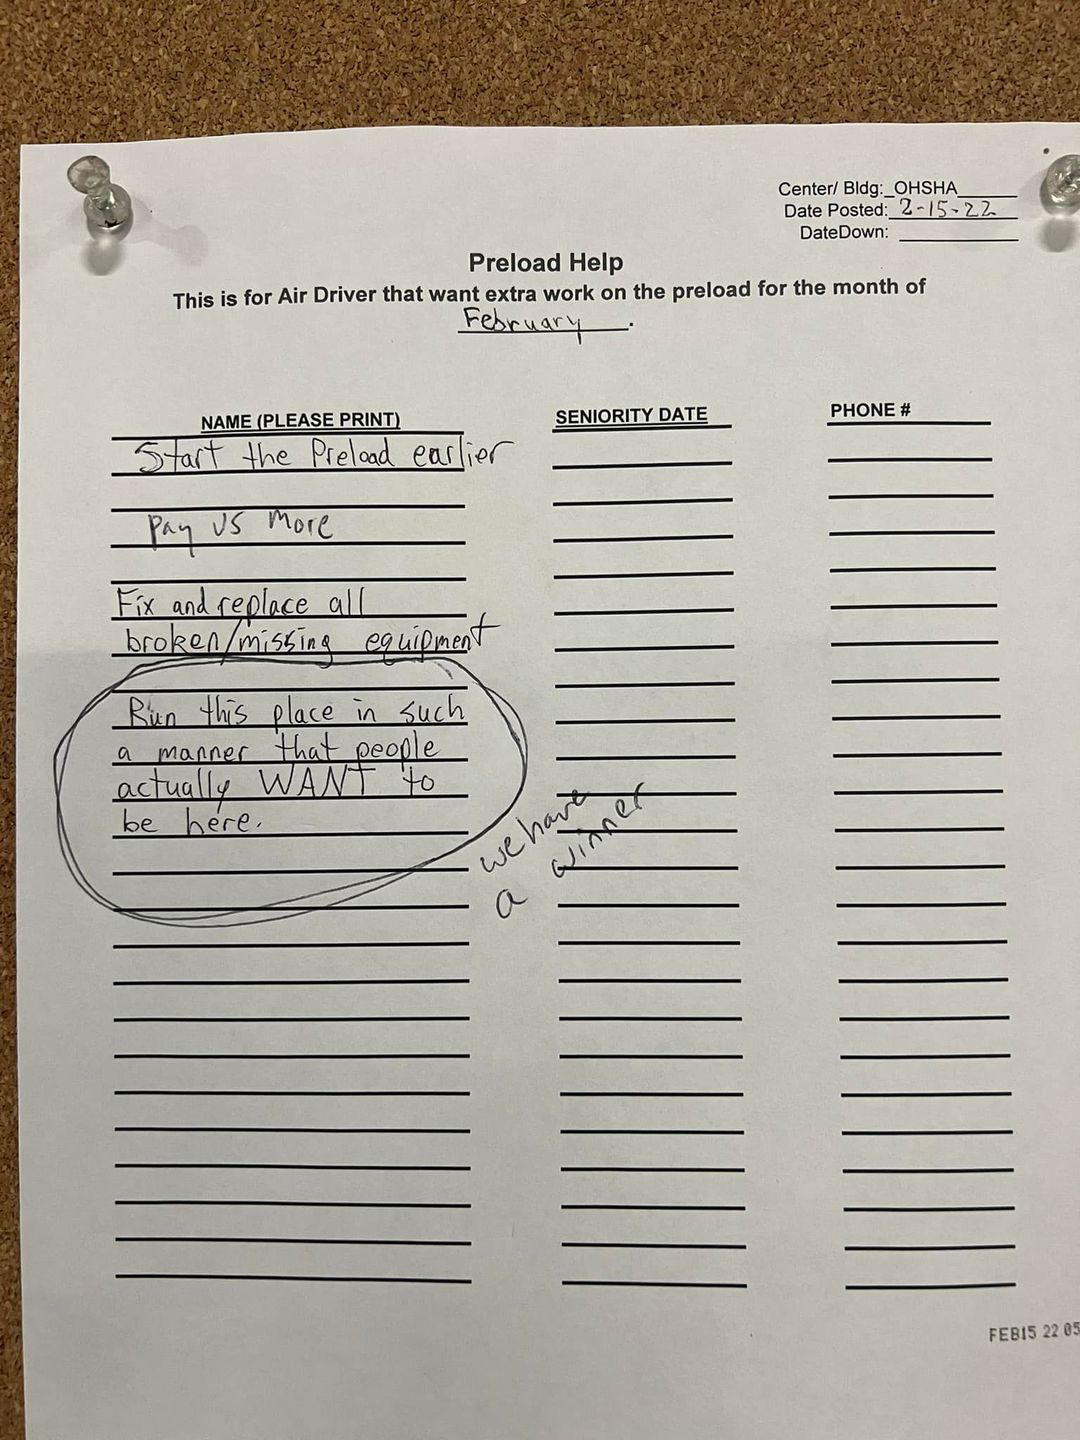 Center/ Bldg:_OHSHA______
Date Posted: 2-15-22
DateDown: ____________
Preload Help
This is for Air Driver that want extra work on the preload for the month of
February.
NAME (PLEASE PRINT) SENIORITY DATE PHONE #
Start the Preload earlier
Pay US More
Fix and replace all
broken/missing equipment
Run this place in such
a manner that people
actually WANT to
be here.
we have
a winner
FEB15 22 05